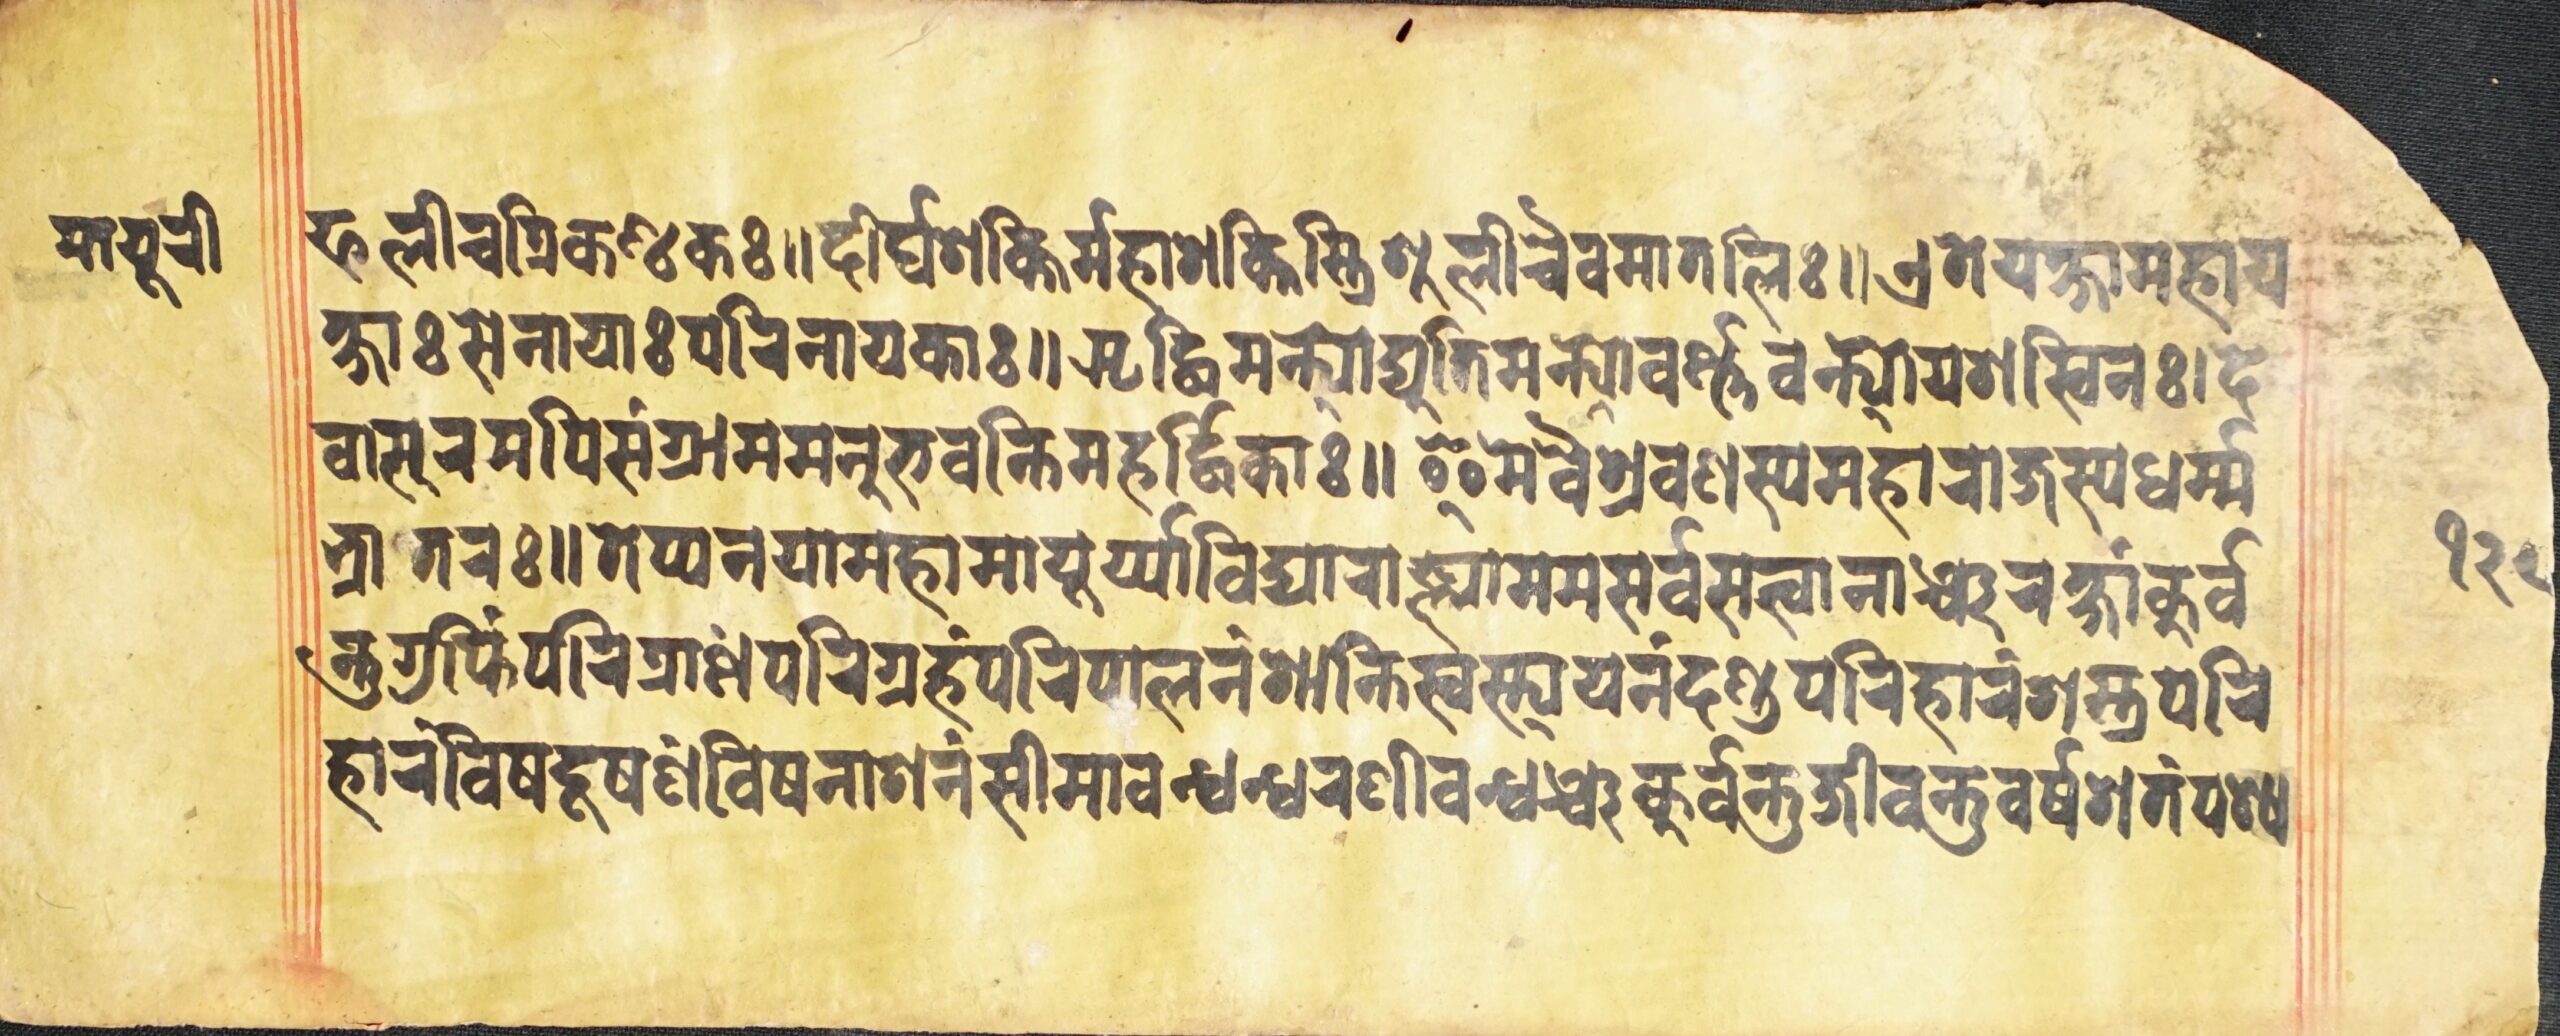 मायूरी
फलीचत्रिकण्टकः॥दीर्घशक्तिर्महाशक्तिस्त्रिशुलीचैवमातलिः॥एतेयक्षामहाय
क्षाःसेनायाःपरिनायकाः॥ऋद्धिमन्त्योद्युतिमन्त्योवर्ण्णवन्त्योयशस्विनः।दे
वासुरमपिसंग्राममनुभवन्तिमहर्द्धिकाः॥इमेवैश्रवणस्यमहाराजस्यधर्म्म
भ्रातरः॥तेप्यनयामहामायूर्य्याविद्याराज्ञ्याममसर्वसत्वानाञ्चरक्षांकुर्व
न्तुगुप्तिंपरित्राणंपरिग्रहंपरिपालनंशान्तिस्वस्त्ययनंदण्डपरिहारंशस्त्रपरि
हारंविषदूषणंविषनाशनंसीमाबन्धन्धरणीबन्धञ्चकुर्वन्तुजीवन्तुवर्षशतंपश्य